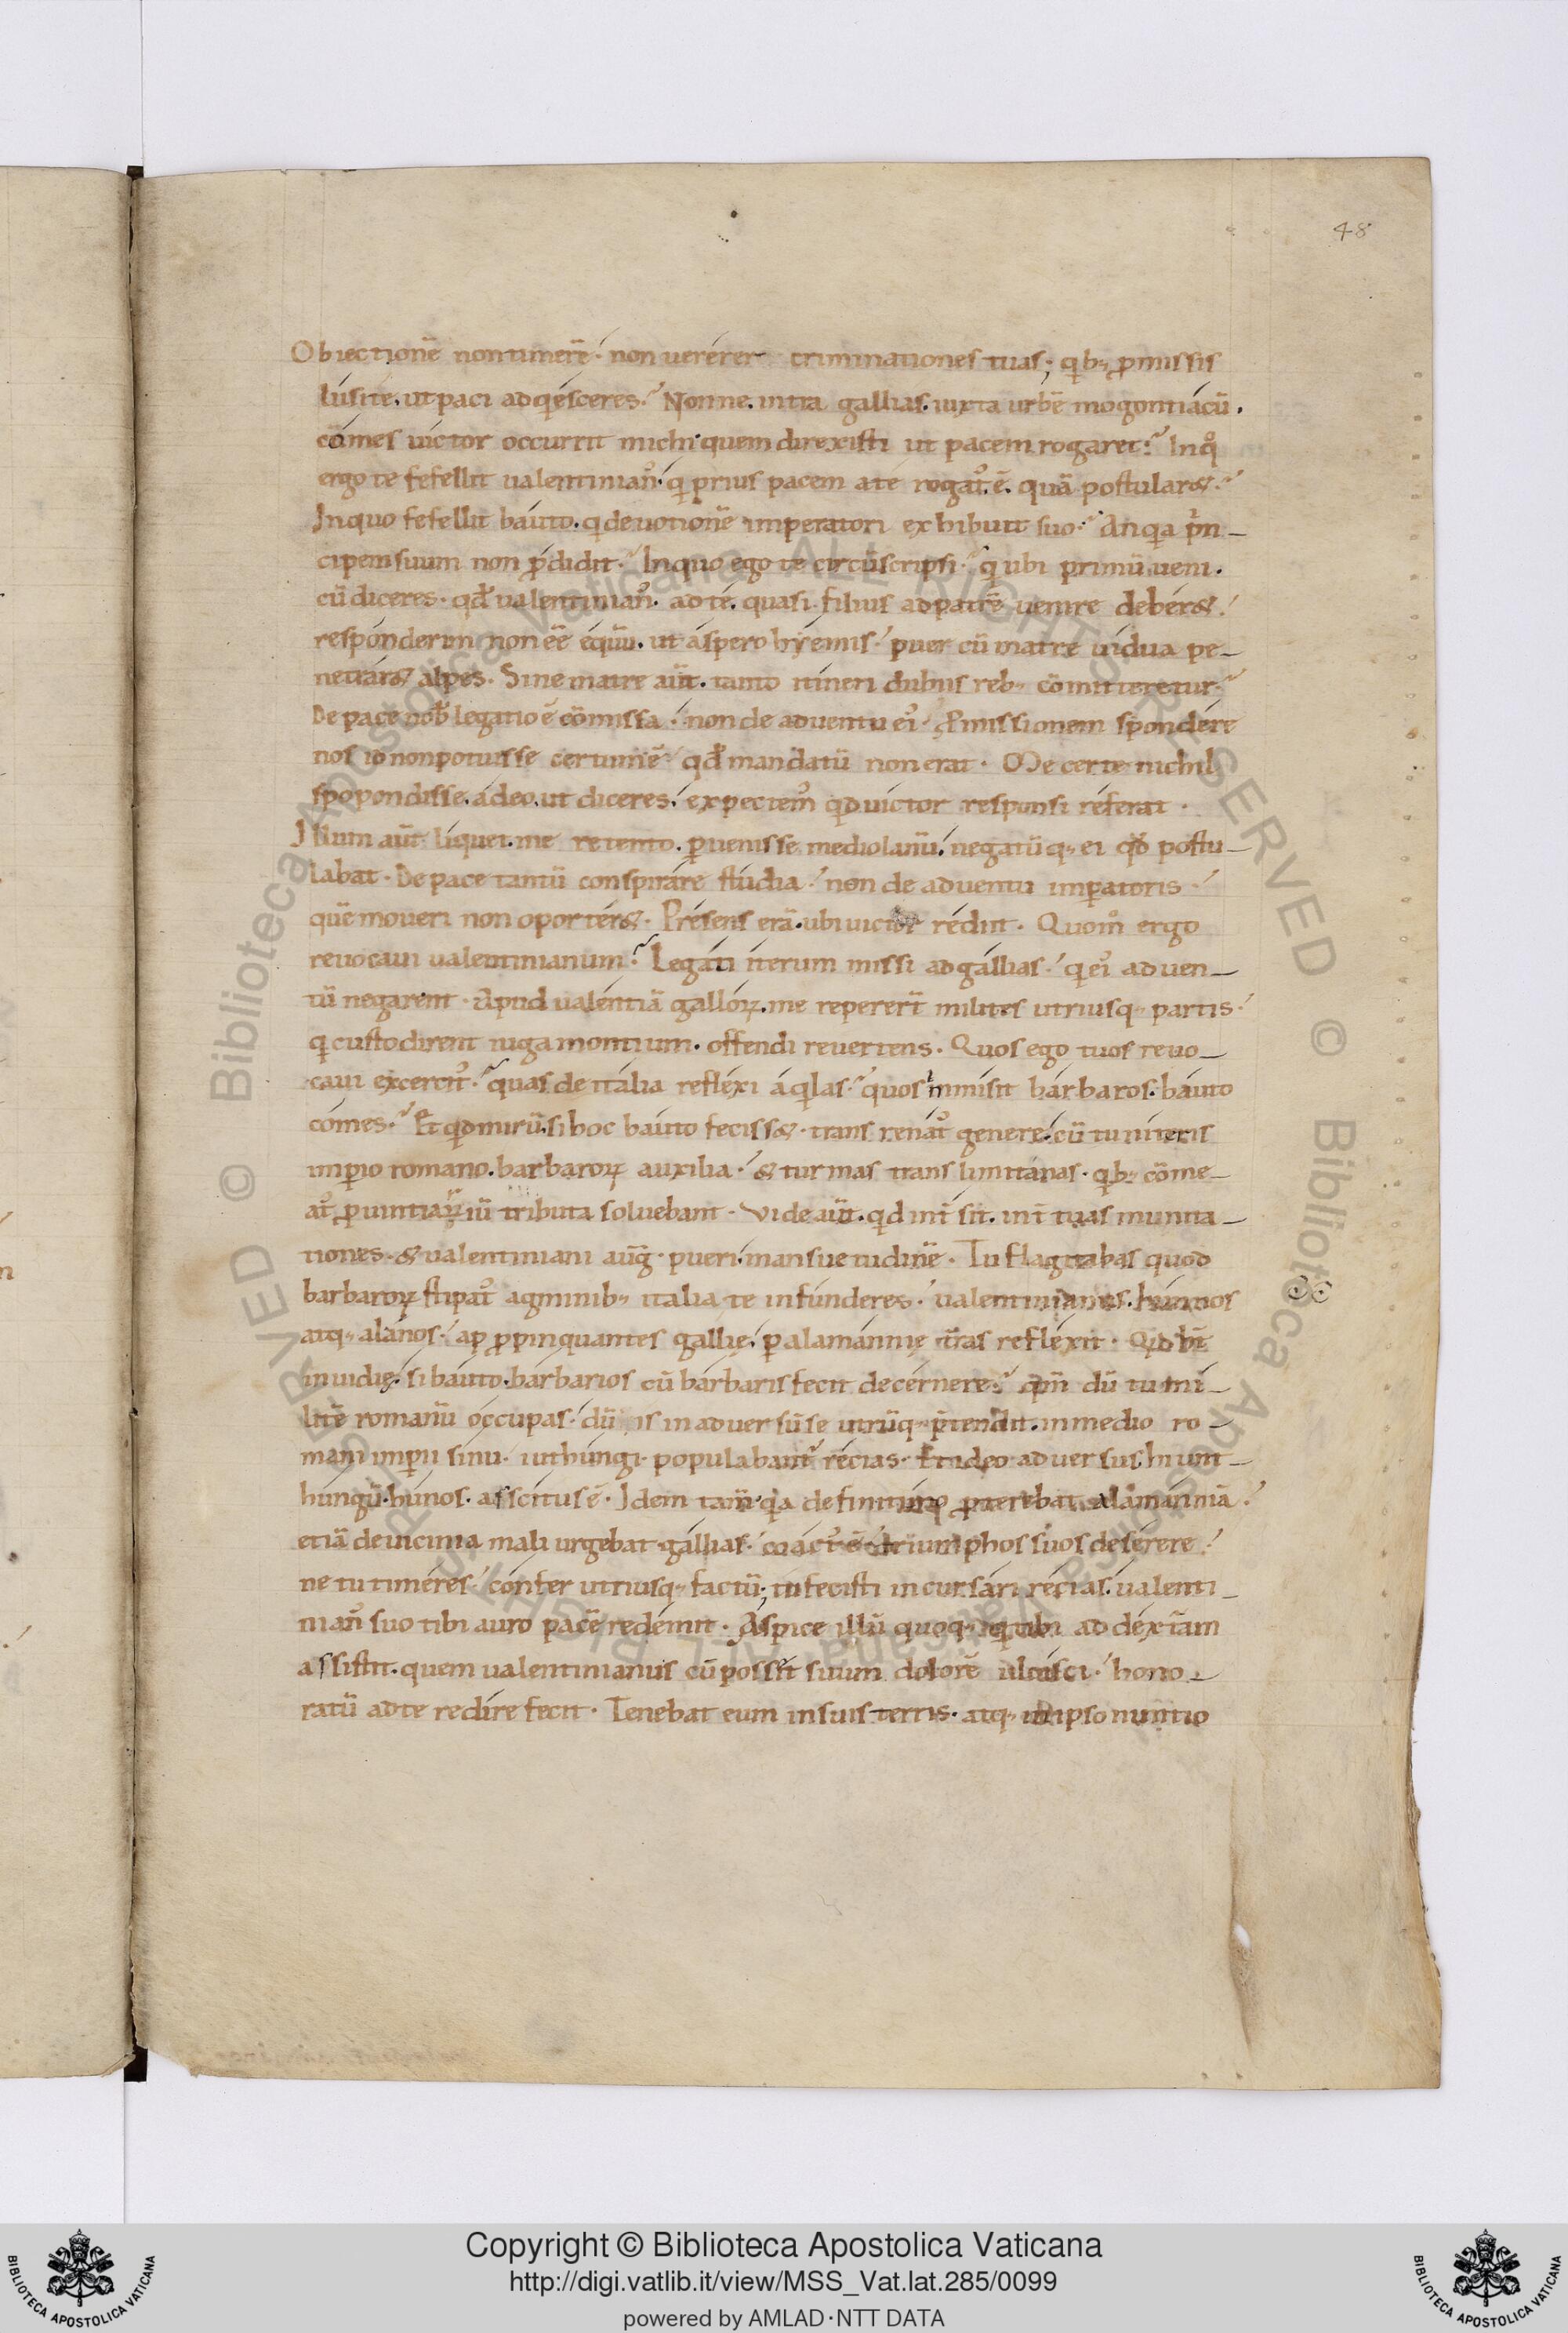 48
Obiectionē non timerē· non vererer criminationes tuas; qib; ꝓmissis
lusite. ut paci adqiesceres. Nonne. intra gallias. iuxta urbē mogontiacū.
cōmes uictor occurrit michi quem direxisti ut pacem rogaret: Inqͦ
ergo te fefellit ualentinianꝰ· qi prius pacem a te rogatꝰ. ē. quā postular&.
In quo fefellit bauto. qi deuotionē imperatori exhibuit suo. An qia prin-
cipem suum non ꝓdidit. Inquo ego te circūscripsi. qi ubi primū ueni.
cū diceres. qđ ualentinianꝰ. ad te. quasi filius ad patrē uenire deber&.
responderim non eē equū. ut aspero hyemis. puer cū matre uidua pe-
netrar& alpes. Sine matre aūt. tanto itineri dubiis reb; cōmitteretur.
De pace nob legatio ē cōmissa. non de aduentu eiꝰ. Ꝓmissionem spondere
nos io non potuisse certum ē. qđ mandatū non erat. Me certe nichil
spopondisse. adeo. ut diceres. expectemꝰ qid uictor responsi referat.
Illum aūt liquet. me retento. ꝑuenisse mediolanū. negatū q; ei qđ postu-
labat. De pace tantū conspirare studia. non de aduentu imꝑatoris.
quē moueri non oporter&. Presens erā. ubi uictor rediit. Quomͦ ergo
reuocaui ualentinianum. Legati iterum missi ad gallias. qi eiꝰ aduen-
tū negarent. Apud ualentiā galloꝝ. me repererūt milites utriusq; partis.
qi custodirent iuga montium. offendi reuertens. Quos ego tuos reuo-
caui excercitꝰ. quas de italia reflexi aqilas. quos inmisit barbaros. bauto
comes. Et qid mirū. si hoc bauto feciss&. trans renatꝰ genere. cū tu niteris
imꝑio romano. barbaroꝝ auxilia. & turmas trans limitanas. qib; cōme-
atꝰ ꝓuintiaꝝ iū tributa soluebant. Vide aūt. qid int sit. int tuas munita-
tiones. & ualentiniani aug. pueri. mansuetudinē. Tu flagitabas quod
barbaroꝝ stipatꝰ agminib; italia te infunderes. ualentinianus. hunnos
atq; alanos. apꝓpinquantes gallię. ꝑ alamannię tras reflexit. Qid ht
inuidię. si bauto. barbarios cū barbaris fecit decernere. qm dū tu mi-
litē romanū occupas. dū is in aduersū se utrūq; ptendit. in medio ro-
mani imꝑii sinu. iuthungi populabant recias. Et ideo aduersus hiunt-
hungū. hunos. asscitus ē. Idem tam qia de finitimo alamanniā.
etiā de uicinia mali urgebat gallias. coactꝰ ē triumphos suos deserere.
ne tu timeres. confer utriusq; factū; tu fecisti incursari recias. ualenti-
nianꝰ suo tibi auro pacē redemit. Aspice illū quoq; qui tibi ad dextam
assistit. quem ualentinianus cū possit suum dolorē ulcisci. hono-
ratū ad te redire fecit. Tenebat eum in suis terris. atq; in ipso nuntio
© Biblioteca Apostolica Vaticana ALL RIGHTS RESERVED © Biblioteca Apostolica Vaticana ALL RIGHTS RESERVED
Copyright © Biblioteca Apostolica Vaticana
http://digi.vatlib.it/view/MSS_Vat.lat.285/0099
powered by AMLAD·NTT DATA
BIBLIOTECA APOSTOLICA VATICANA
BIBLIOTECA APOSTOLICA VATICANA